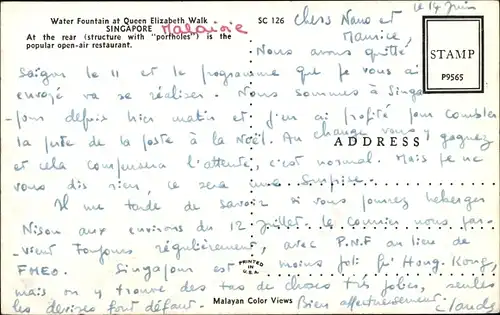 Water Fountain at Queen Elizabeth Walk
SINGAPORE Malaisie
At the rear (structure with "portholes") is the
popular open-air restaurant.
SC 126
le 14 Juin
Chers Nano et
Maurice,
STAMP
P9565
Nous avons quitté
Saïgon le 11 et le programme que je vous ai
envoyé va se réaliser. Nous sommes à Singa
pour depuis hier matin et j'en ai profité pour combler
la perte de la poste à la Noël. Au change vous y gagnez
ADDRESS
et cela compensera l'attente, c'est normal. Mais je ne
vous dis rien, ce sera une surprise.
Il me tarde de savoir si vous pourrez héberger
Nison aux environs du 12 Juillet. Le courrier nous par-
vient toujours régulièrement, avec P.N.F au lieu de
FMEO. Singapour est moins joli qu'Hong Kong,
PRINTED
IN
U.S.A.
mais on y trouve des tas de choses très jolies, seules
les devises font défaut. Bien affectueusement
Malayan Color Views
Claude